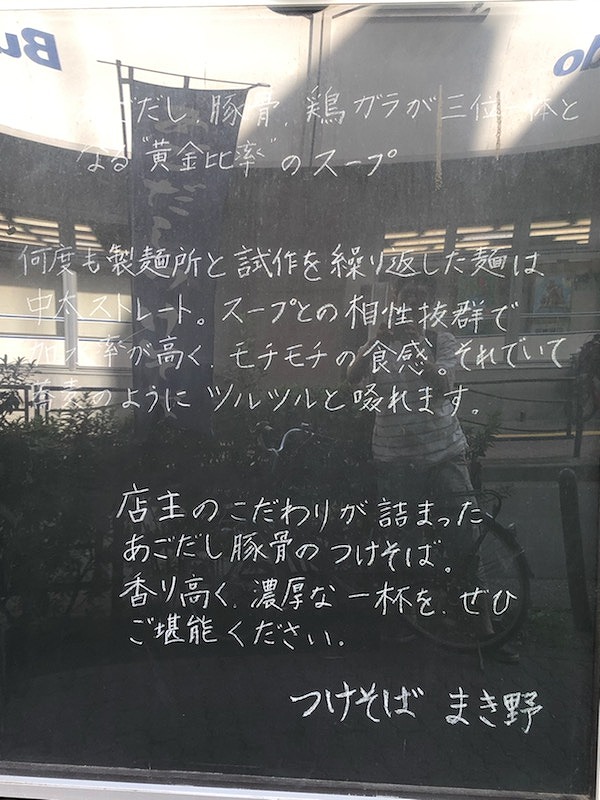 Bu
do
ごだし、豚骨、鶏ガラが三位一体と
なる"黄金比率"のスープ
何度も製麺所と試作を繰り返した麺は
中太ストレート。スープとの相性抜群で
加水率が高く、モチモチの食感。それでいて
蕎麦のようにツルツルと啜れます。
店主のこだわりが詰まった
あごだし豚骨のつけそば。
香り高く、濃厚な一杯を、ぜひ
ご堪能ください。
つけそば まき野